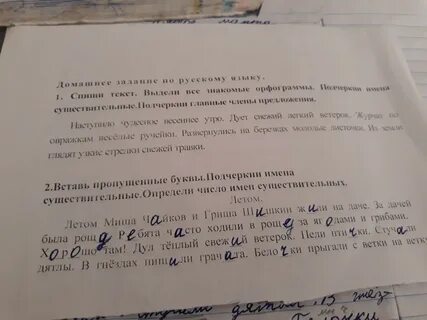 Домашнее задание по русскому языку.
1. Спиши текст. Выдели все знакомые орфограммы. Подчеркни имена
существительные.Подчеркни главные члены предложения.
Наступило чудесное весеннее утро. Дует свежий легкий ветерок. Журчат по
овражкам весёлые ручейки. Развернулись на березках молодые листочки. Из земли
глядят узкие стрелки свежей травки.
2.Вставь пропущенные буквы.Подчеркни имена
существительные.Определи число имен существительных.
Летом.
Летом Миша Чайков и Гриша Шишкин жили на даче. За дачей
была рощд Ребята часто ходили в рощд за ягодами и грибами.
Хорошо там! Дул тёплый свежий ветерок. Пели птички. Стучали
дятлы. В гнёздах пищили грачата. Белочки прыгали с ветки на ветку
дятлы. 15